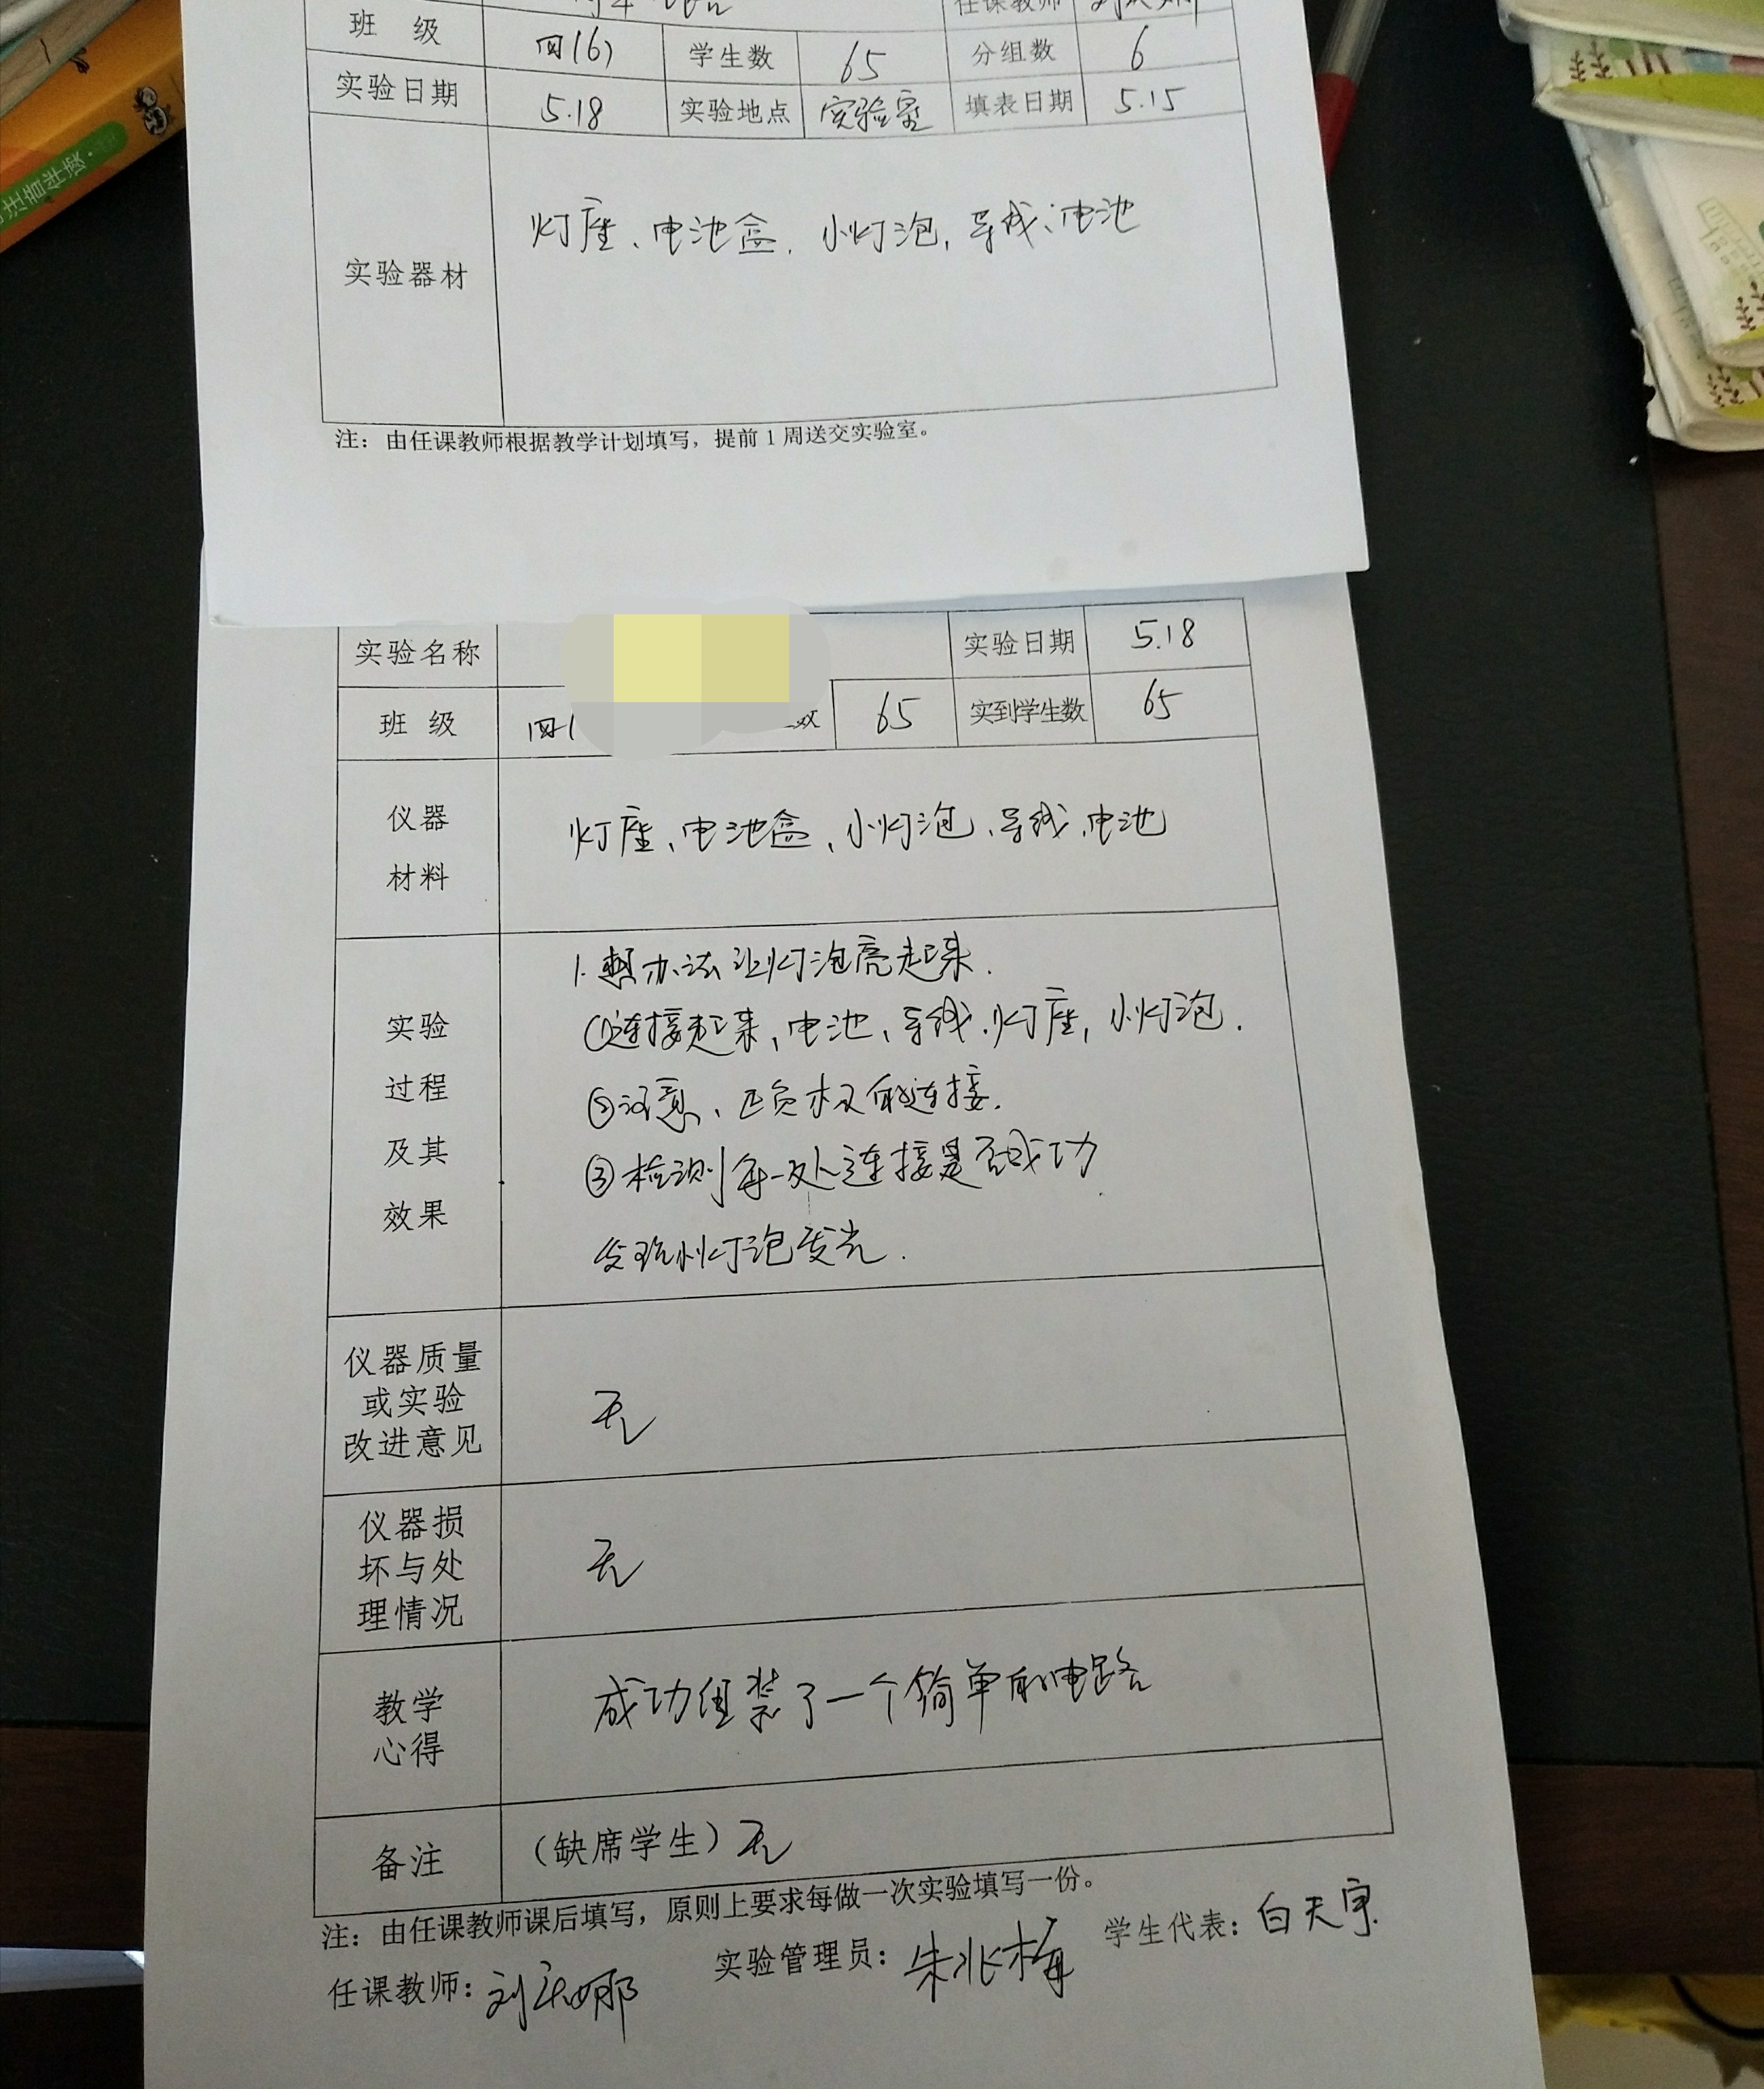 任课教师
班 级 四(6) 学生数 65 分组数 6
实验日期 5.18 实验地点 实验室 填表日期 5.15
实验器材 灯座、电池盒、小灯泡,导线、电池
注:由任课教师根据教学计划填写,提前1周送交实验室。
实验名称 实验日期 5.18
班 级 四( 数 65 实到学生数 65
仪器
材料
灯座、电池盒、小灯泡、导线、电池
实验
过程
及其
效果
1.想办法让灯泡亮起来.
①连接起来,电池,导线.灯座,小灯泡.
②注意、正负极的连接.
③检测每一处连接是否成功
发现小灯泡发光.
仪器质量
或实验
改进意见
无
仪器损
坏与处
理情况
无
教学
心得
成功组装了一个简单的电路
备注 (缺席学生)无
注:由任课教师课后填写,原则上要求每做一次实验填写一份。
任课教师:刘 娜 实验管理员:朱兆梅 学生代表:白天宇